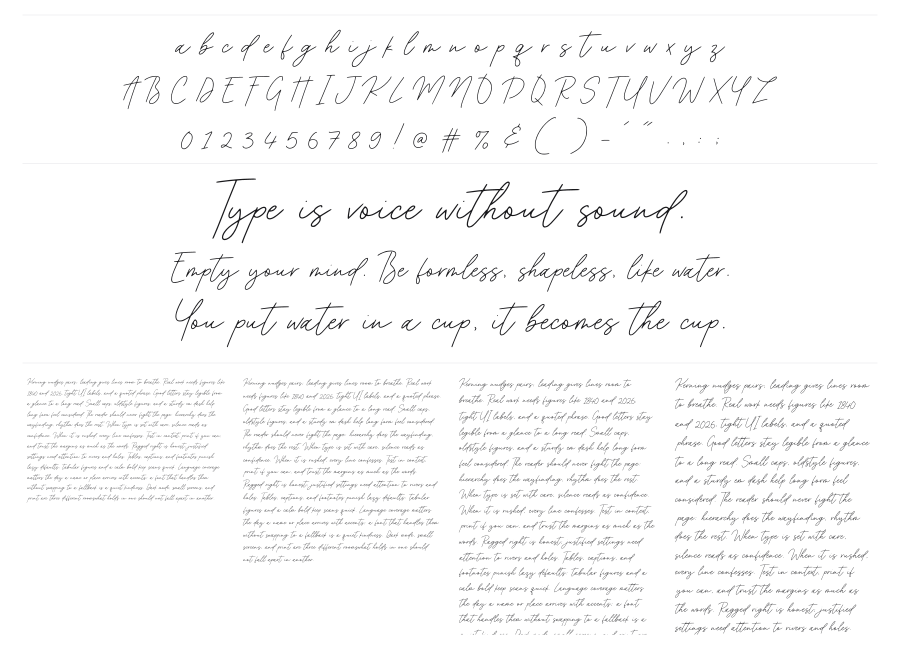 a b c d e f g h i j k l m n o p q r s t u v w x y z
A B C D E F G H I J K L M N O P Q R S T U V W X Y Z
0 1 2 3 4 5 6 7 8 9 ! @ # % & ( ) - ' " . , : ;
Type is voice without sound.
Empty your mind. Be formless, shapeless, like water.
You put water in a cup, it becomes the cup.
Kerning nudges pairs, leading gives lines room to breathe. Real work needs figures like
1840 and 2026, tight UI labels, and a quoted phrase. Good letters stay legible from
a glance to a long read. Small caps, oldstyle figures, and a sturdy en dash help
long form feel considered. The reader should never fight the page: hierarchy does the
wayfinding, rhythm does the rest. When type is set with care, silence reads as
confidence. When it is rushed, every line confesses. Test in context, print if you can,
and trust the margins as much as the words. Ragged right is honest, justified
settings need attention to rivers and holes. Tables, captions, and footnotes punish
lazy defaults. Tabular figures and a calm bold keep scans quick. Language coverage
matters the day a name or place arrives with accents; a font that handles them
without snapping to a fallback is a quiet kindness. Dark mode, small screens, and
print are three different rooms that holds in one should not fall apart in another.
Kerning nudges pairs, leading gives lines room to breathe. Real work
needs figures like 1840 and 2026, tight UI labels, and a quoted phrase.
Good letters stay legible from a glance to a long read. Small caps,
oldstyle figures, and a sturdy en dash help long form feel considered.
The reader should never fight the page: hierarchy does the wayfinding,
rhythm does the rest. When type is set with care, silence reads as
confidence. When it is rushed, every line confesses. Test in context,
print if you can, and trust the margins as much as the words.
Ragged right is honest, justified settings need attention to rivers and
holes. Tables, captions, and footnotes punish lazy defaults. Tabular
figures and a calm bold keep scans quick. Language coverage matters
the day a name or place arrives with accents; a font that handles them
without snapping to a fallback is a quiet kindness. Dark mode, small
screens, and print are three different rooms holds in one should
not fall apart in another.
Kerning nudges pairs, leading gives lines room to
breathe. Real work needs figures like 1840 and 2026,
tight UI labels, and a quoted phrase. Good letters stay
legible from a glance to a long read. Small caps,
oldstyle figures, and a sturdy en dash help long form
feel considered. The reader should never fight the page:
hierarchy does the wayfinding, rhythm does the rest.
When type is set with care, silence reads as confidence.
When it is rushed, every line confesses. Test in context,
print if you can, and trust the margins as much as the
words. Ragged right is honest, justified settings need
attention to rivers and holes. Tables, captions, and
footnotes punish lazy defaults. Tabular figures and a
calm bold keep scans quick. Language coverage matters
the day a name or place arrives with accents; a font
that handles them without snapping to a fallback is a
Kerning nudges pairs, leading gives lines room
to breathe. Real work needs figures like 1840
and 2026, tight UI labels, and a quoted
phrase. Good letters stay legible from a glance
to a long read. Small caps, oldstyle figures,
and a sturdy en dash help long form feel
considered. The reader should never fight the
page: hierarchy does the wayfinding, rhythm
does the rest. When type is set with care,
silence reads as confidence. When it is rushed,
every line confesses. Test in context, print if
you can, and trust the margins as much as
the words. Ragged right is honest, justified
settings need attention to rivers and holes.